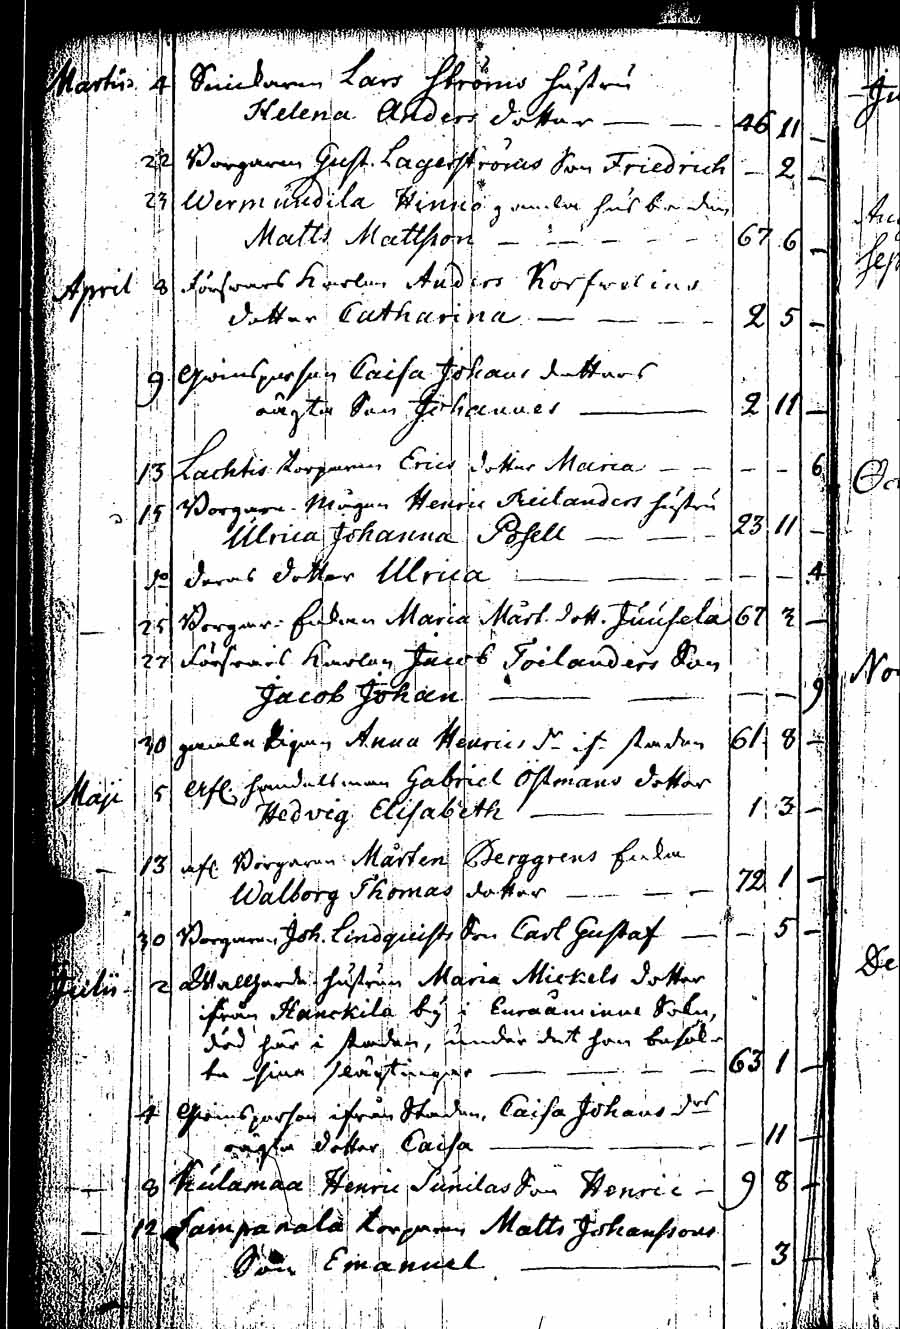 Martii 4 Smidaren Lars Ströms hustru
Helena Anders dotter — — — 46 11 –
22 Borgaren Gust. Lagerströms Son Friedrich – 2 –
23 Wermundila Hinno gamla husbonden
Matts Mattsson – – – – – 67 6 –
April 8 Försvars Karlen Anders Korfvelins
dotter Catharina — – – – 2 5 –
9 Qvinsperson Caisa Johans dotters
oägta Son Johannes — 2 11 –
13 Lachtis torparen Erics dotter Maria – – – – – 6
15 Borgare Mågen Henric Reilanders hustru
Ulrica Johanna Poselt — — – 23 11 –
do deras dotter Ulrica — — – – – 4
– 25 Borgar Enkan Maria Mårt. dott. Juusela 67 2 –
27 Försvars Karlen Jacob Toilanders Son
Jacob Johan — — – – – 9
30 gamla Pigan Anna Henrics dr i staden 61 8 –
Maji 5 Afl. handelsman Gabriel Östmans dotter
Hedvig Elisabeth — — 1 3 –
– 13 afl. Borgaren Mårten Berggrens Enka
Walborg Thomas dotter — — – – 72 1 –
30 Borgaren Joh. Lindquists Son Carl Gustaf — – – 5 –
Julii 2 hustrun Maria Mickels dotter
ifrån Hanckila by i Euraåminne Sokn,
död här i staden, under det hon besök-
te sine slägtingar — — – – – 63 1 –
4 Qvinsperson ifrån Staden, Caisa Johans drs
oägta dotter Caisa — — – 11 –
– 8 Kulamaa Henric Sunilas Son Henric – 9 8 –
– 12 Lampanala torparen Matts Johanssons
Son Emanuel — – 3 –